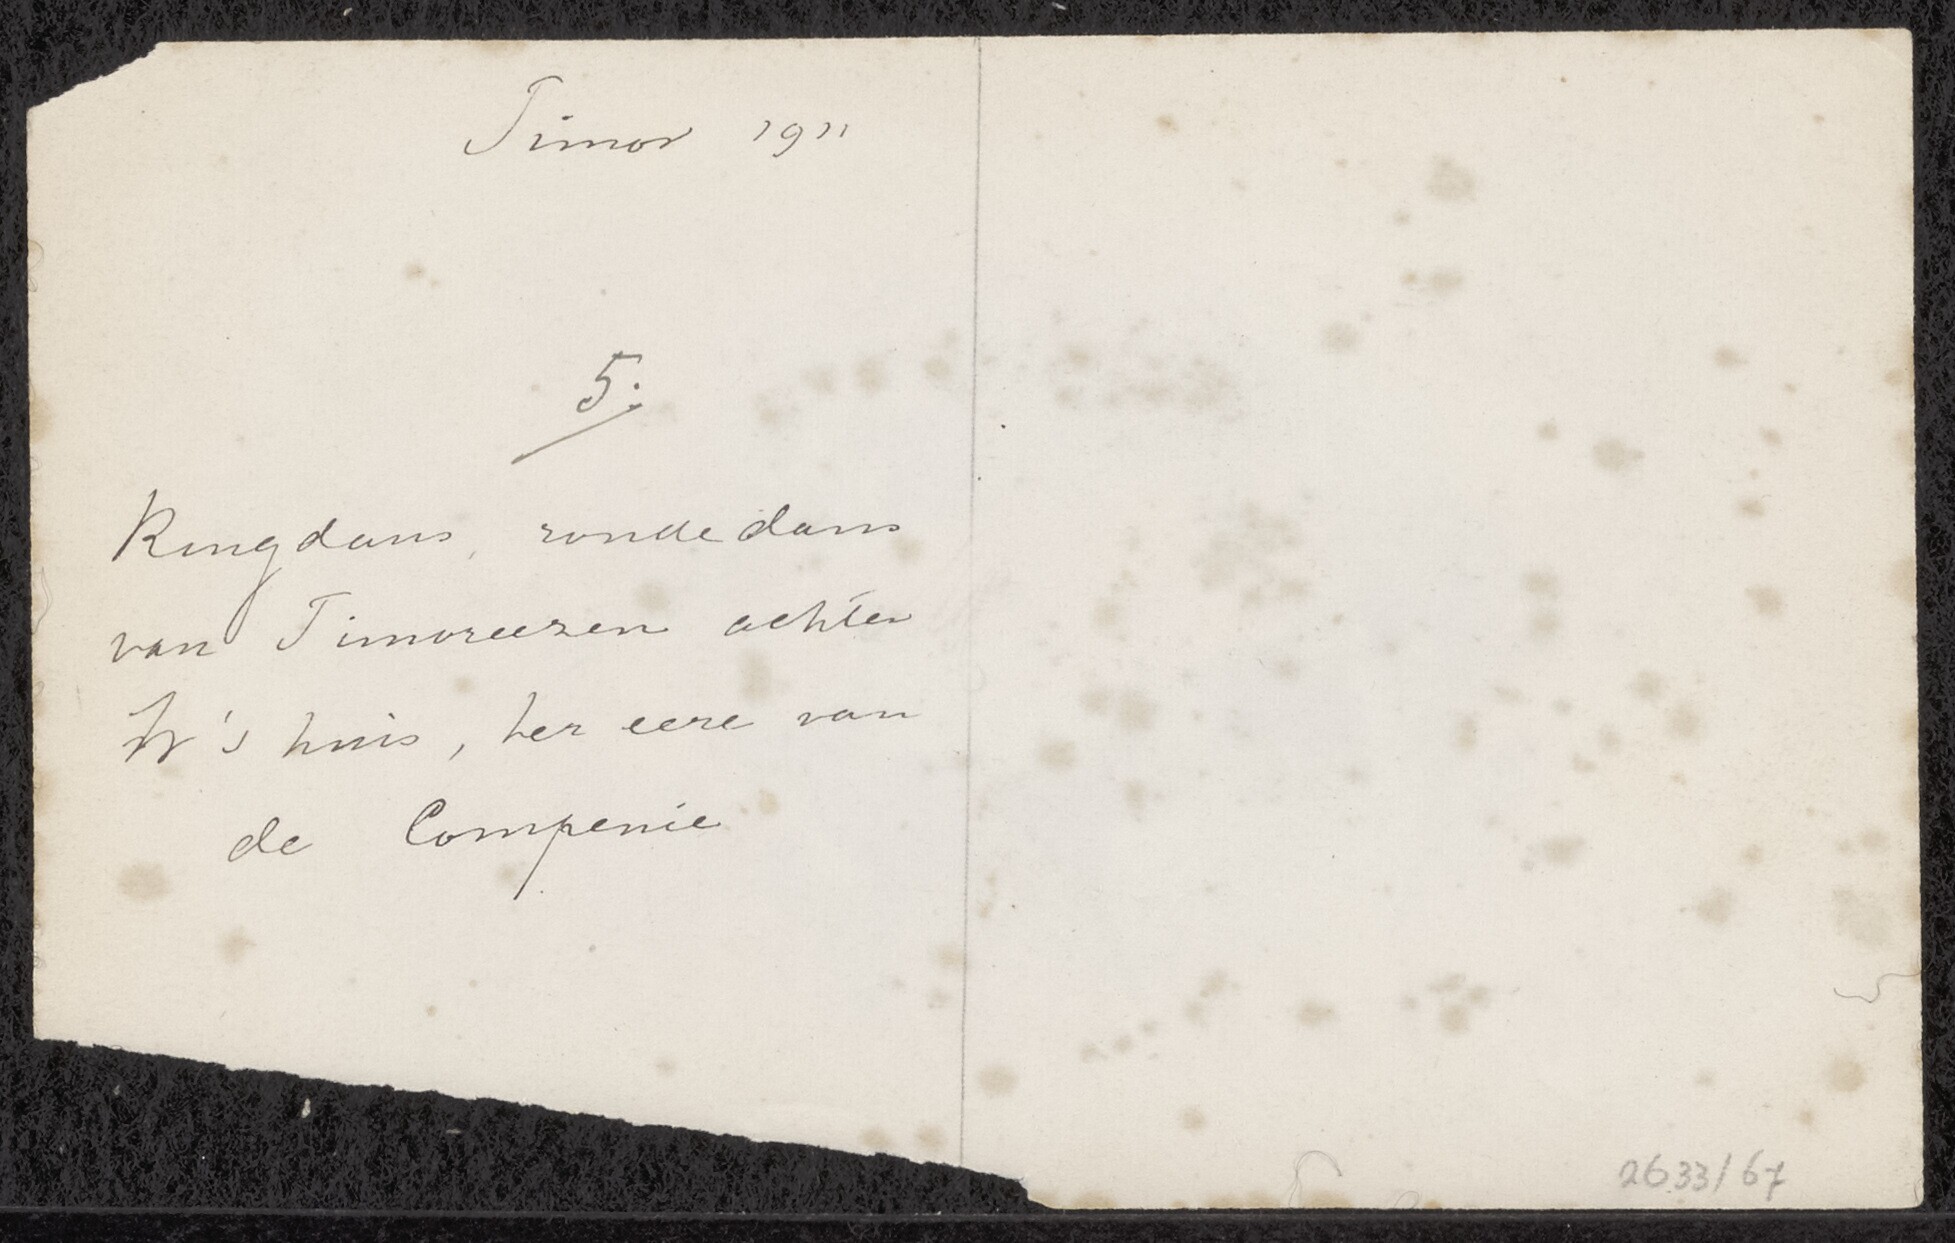 Timor 1911
5.
Ringdans, rondedans
van Timoreezen achter
W's huis, ter eere van
de Compenie
2633/67